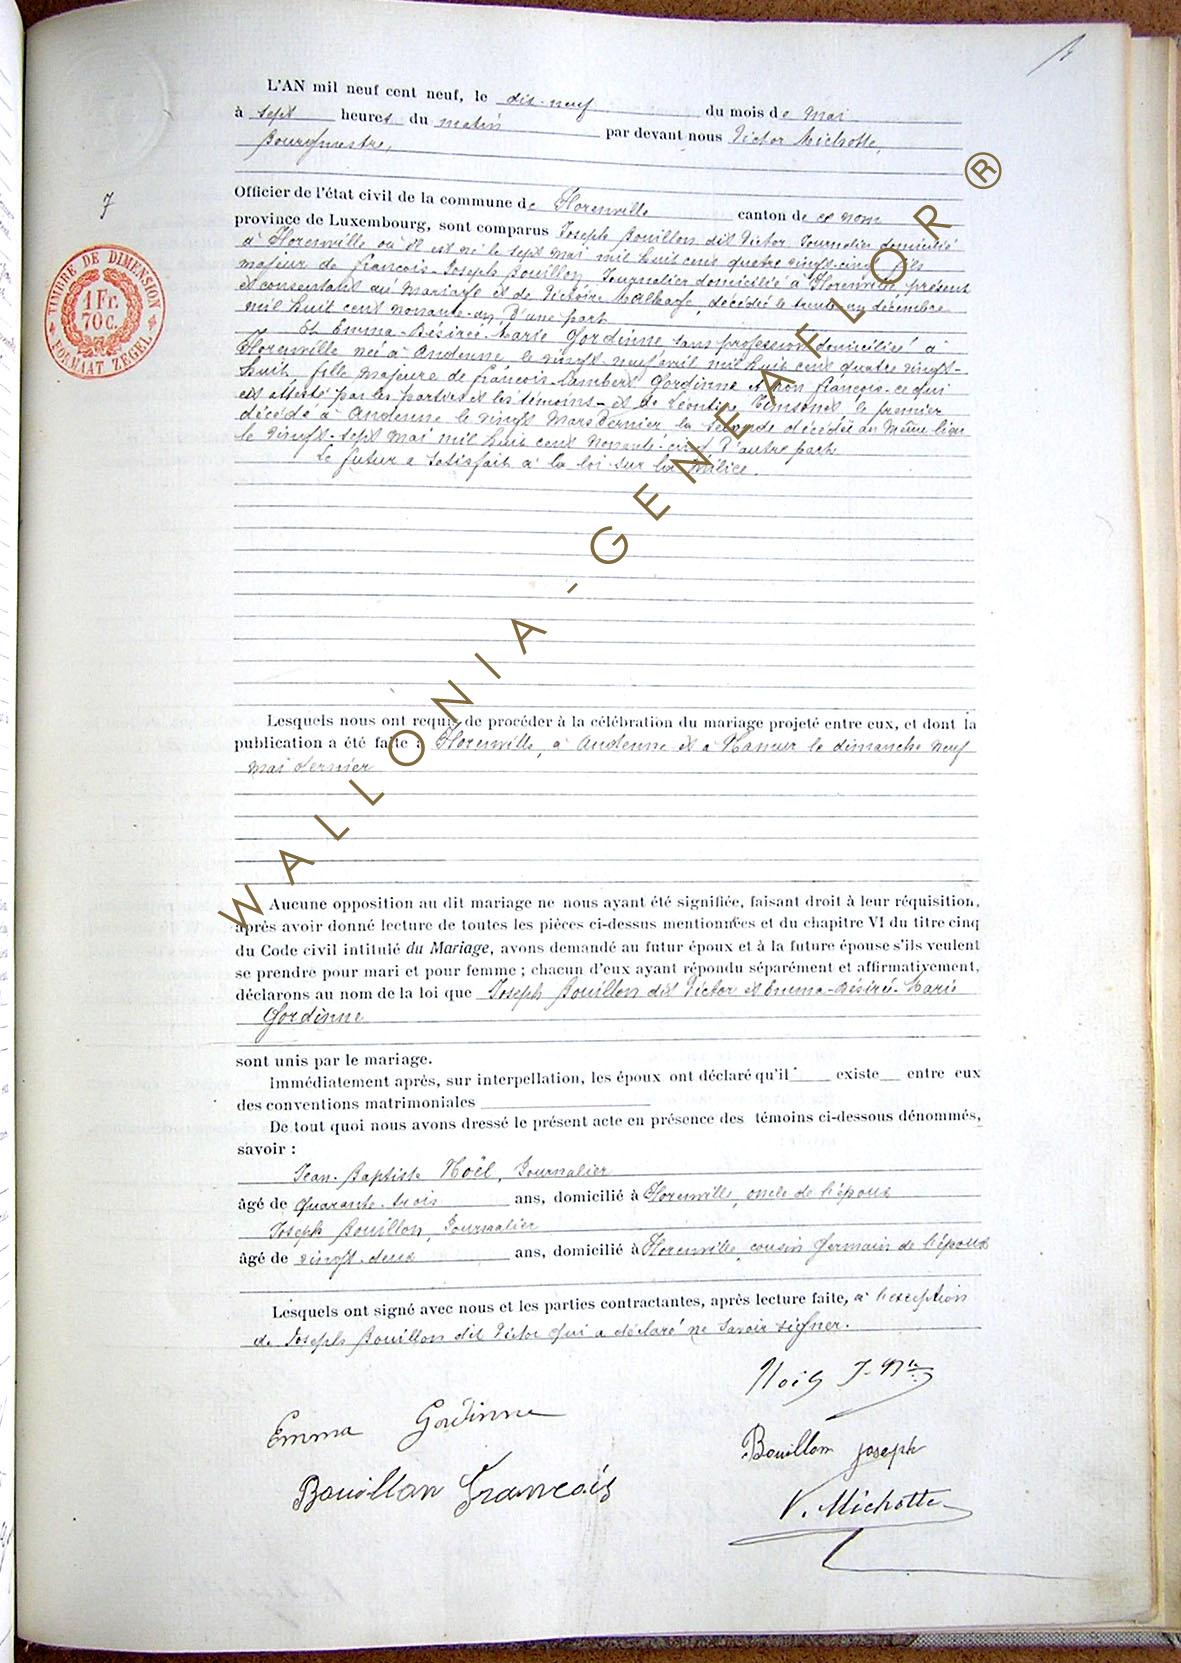 L'AN mil neuf cent neuf, le dix-neuf du mois de Mai
à sept heures du matin par devant nous Victor Michotte,
Bourgmestre,
Officier de l'état civil de la commune de Florenville canton de ce nom
7
province de Luxembourg, sont comparus Joseph Bouillon dit Victor Journalier domicilié
à Florenville où il est né le sept mai mil huit cent quatre vingt-cinq, fils
majeur de François-Joseph Bouillon, Journalier domicilié à Florenville, présent
et consentant au Mariage et de Victoire Malhage, décédée le trente un décembre
mil huit cent nonante-un, D'une part
Et Emma-Désirée-Marie Gordinne sans profession domiciliée à
Florenville née à Andenne le vingt-neuf avril mil huit cent quatre vingt-
huit, fille majeure de François-Lambert Gordinne et non François-ce qui
est attesté par les parties et les témoins-et de Léontine, le premier
décédé à Andenne le vingt Mars dernier, la seconde décédée au même lieu
le vingt-sept mai mil huit cent nonante-cinq, D'autre part
Le futur a satisfait à la loi sur la Milice.
TIMBRE DE DIMENSION
1 Fr.
70 c.
FORMAAT ZEGEL
Lesquels nous ont requis de procéder à la célébration du mariage projeté entre eux, et dont la
publication a été faite à Florenville, à Andenne et à Namur le dimanche neuf
mai dernier
Aucune opposition au dit mariage ne nous ayant été signifiée, faisant droit à leur réquisition,
après avoir donné lecture de toutes les pièces ci-dessus mentionnées et du chapitre VI du titre cinq
du Code civil intitulé du Mariage, avons demandé au futur époux et à la future épouse s'ils veulent
se prendre pour mari et pour femme ; chacun d'eux ayant répondu séparément et affirmativement,
déclarons au nom de la loi que Joseph Bouillon dit Victor et Emma-Désirée-Marie
Gordinne
sont unis par le mariage.
Immédiatement après, sur interpellation, les époux ont déclaré qu'il existe entre eux
des conventions matrimoniales
De tout quoi nous avons dressé le présent acte en présence des témoins ci-dessous dénommés,
savoir :
Jean-Baptiste Noël, Journalier
âgé de quarante-trois ans, domicilié à Florenville, oncle de l'époux
Joseph Bouillon, Journalier
âgé de vingt-deux ans, domicilié à Florenville, cousin Germain de l'époux
Lesquels ont signé avec nous et les parties contractantes, après lecture faite, à l'exception
de Joseph Bouillon dit Victor qui a déclaré ne savoir signer.
Noël J-Bte
Emma Gordinne
Bouillon Joseph
Bouillon François
V. Michotte
WALLONIA-GENEAFLOR ®